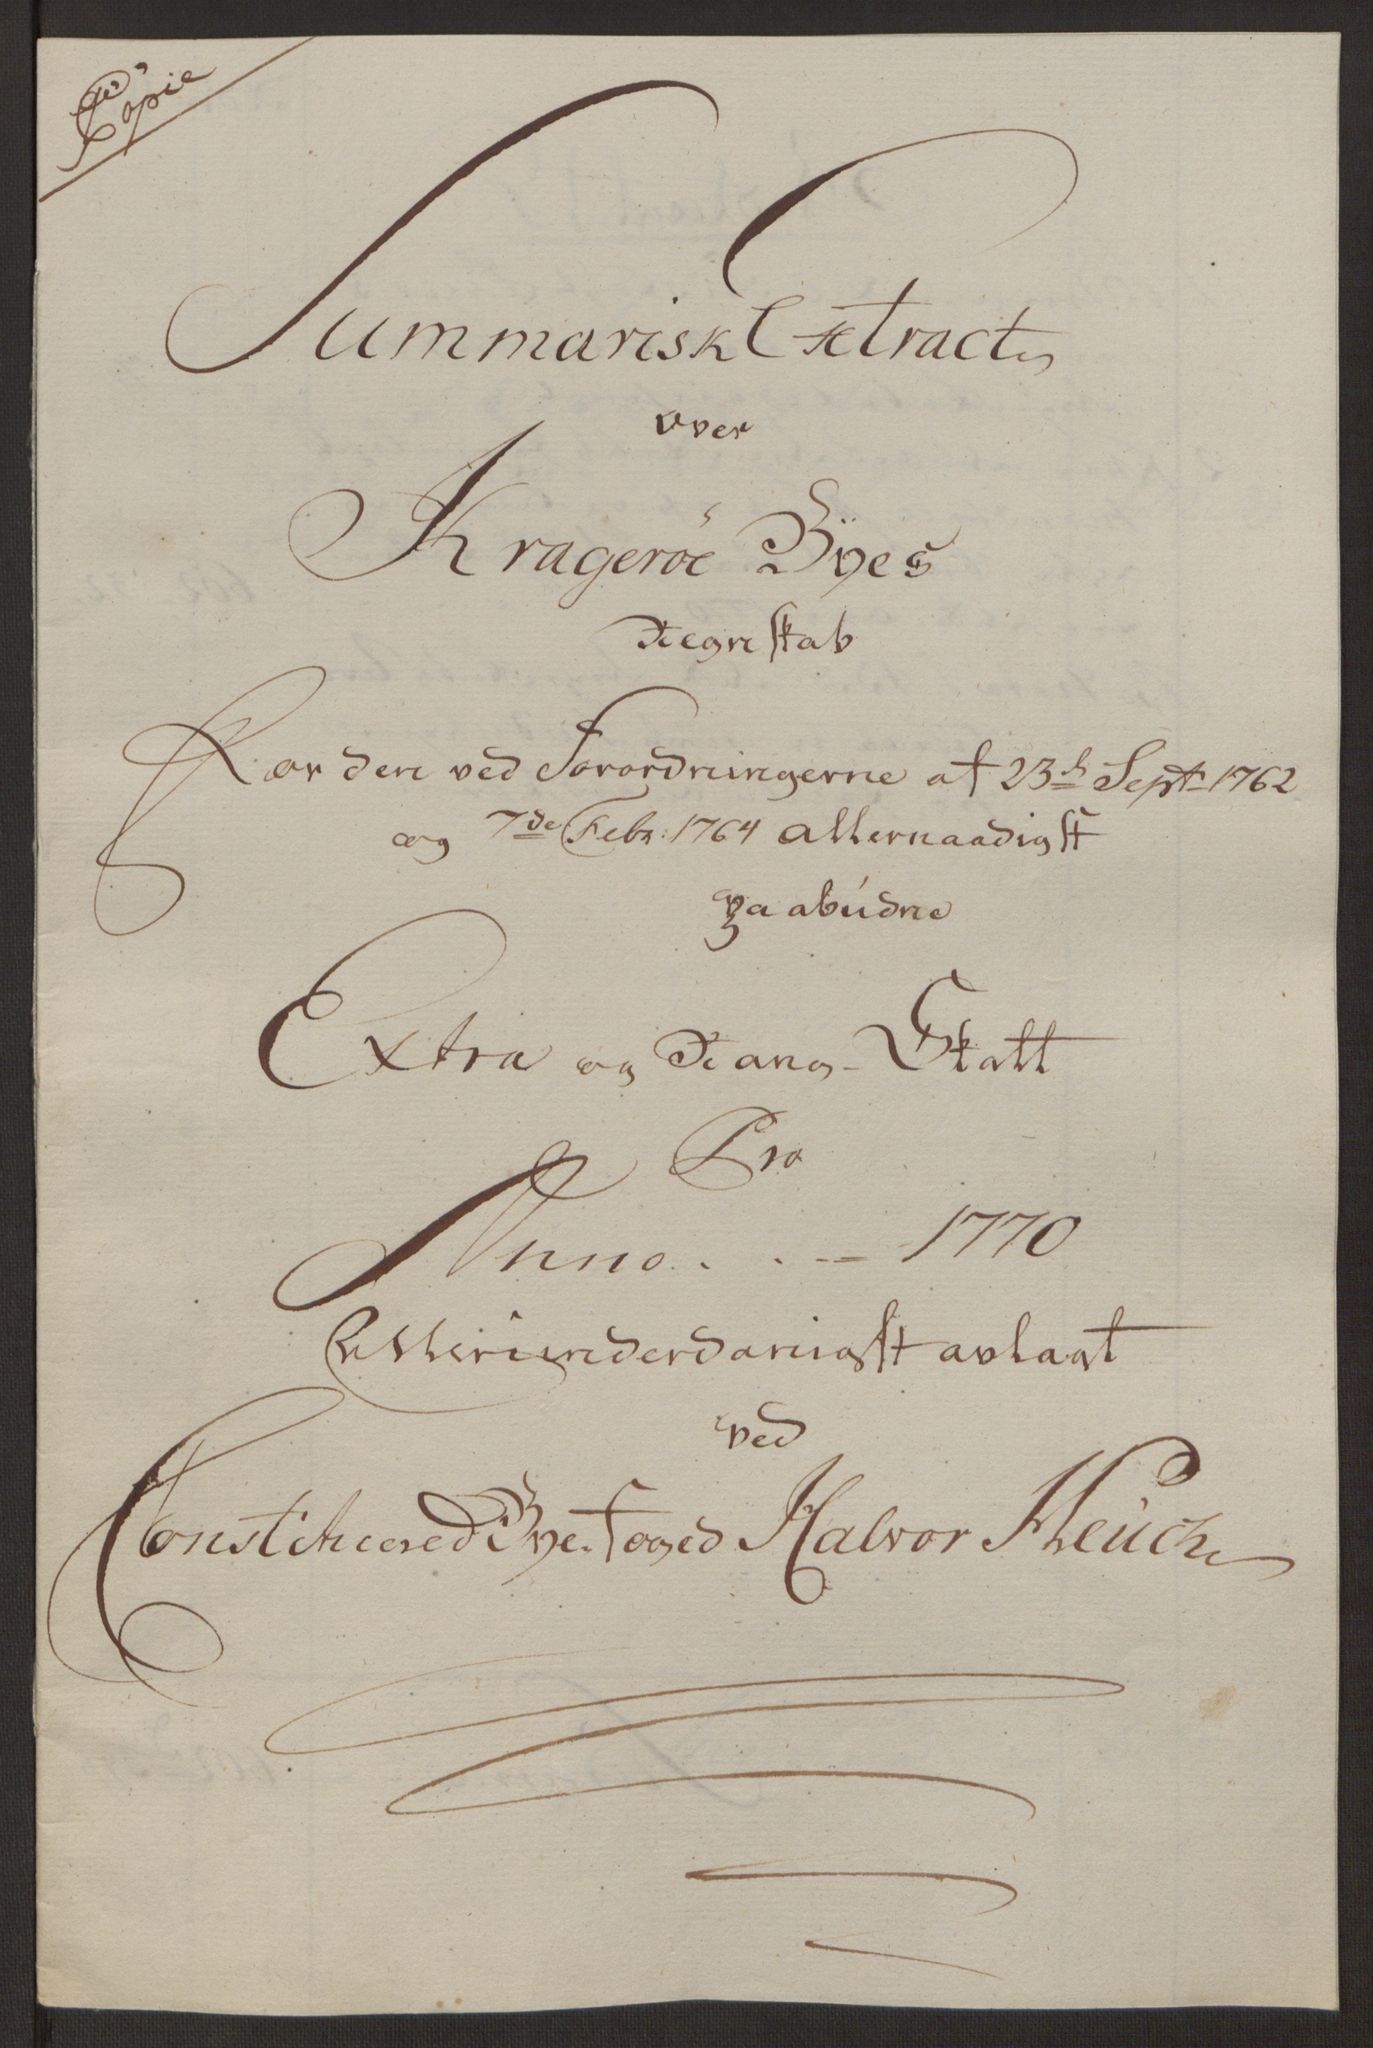 Copie
Summarisk Extract
over
Kragerøe Byes
Regnskab
For den ved Forordningerne af 23d Sept. 1762
og 7de Febr: 1764 allernaadigst
paabudne
Extra og Rang-Skatt
Pro
Anno . . . — 1770
Allerunderdanigst aflagt
ved
Constituered Bye-foged Halvor Heuch